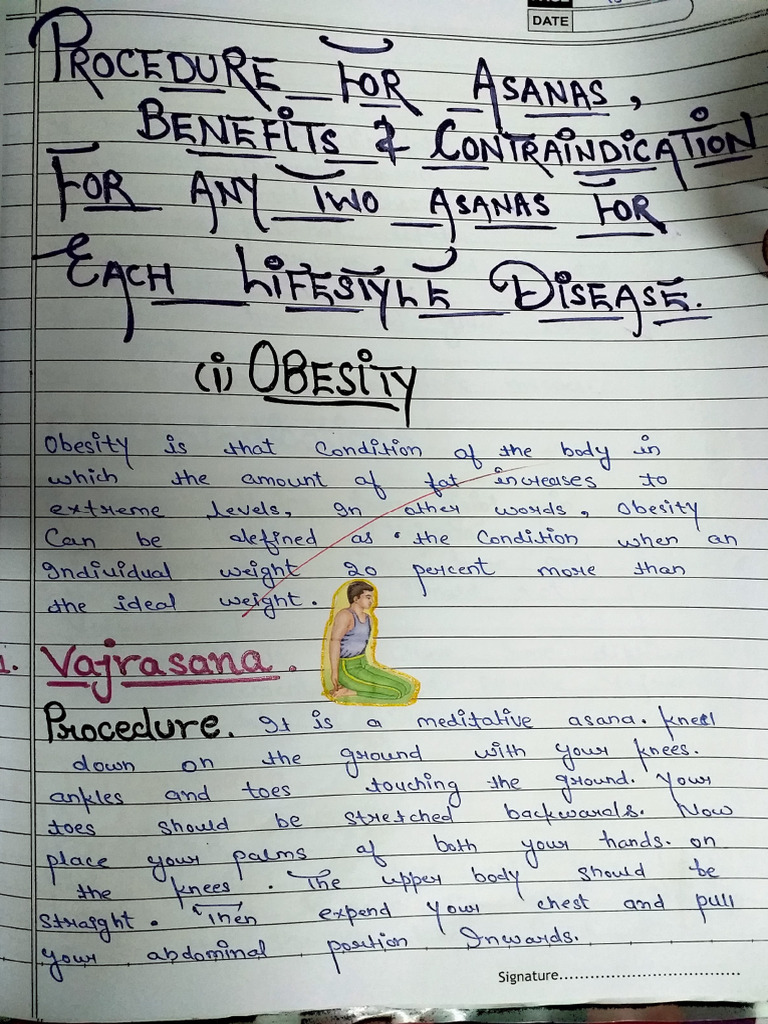 DATE
PROCEDURE FOR ASANAS,
BENEFITS & CONTRAINDICATION
FOR ANY TWO ASANAS FOR
EACH LIFESTYLE DISEASE.
(i) OBESITY
Obesity is that condition of the body in
which the amount of fat increases to
extreme levels, In other words, Obesity
Can be defined as the condition when an
Individual weight 20 percent more than
the ideal weight.
1. Vajrasana.
Procedure. It is a meditative asana. kneel
down on the ground with your knees.
ankles and toes touching the ground. Your
toes should be stretched backwards. Now
place your palms of both your hands. on
the knees. The upper body should be
straight. Then expend your chest and pull
your abdominal portion Inwards.
Signature